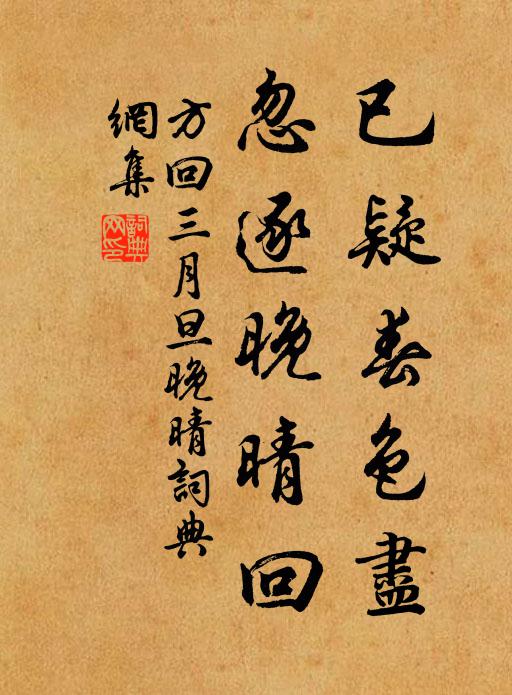 已疑春色盡
忽逐晚晴回
方回三月旦晚晴詞典
網集
詞典
网印